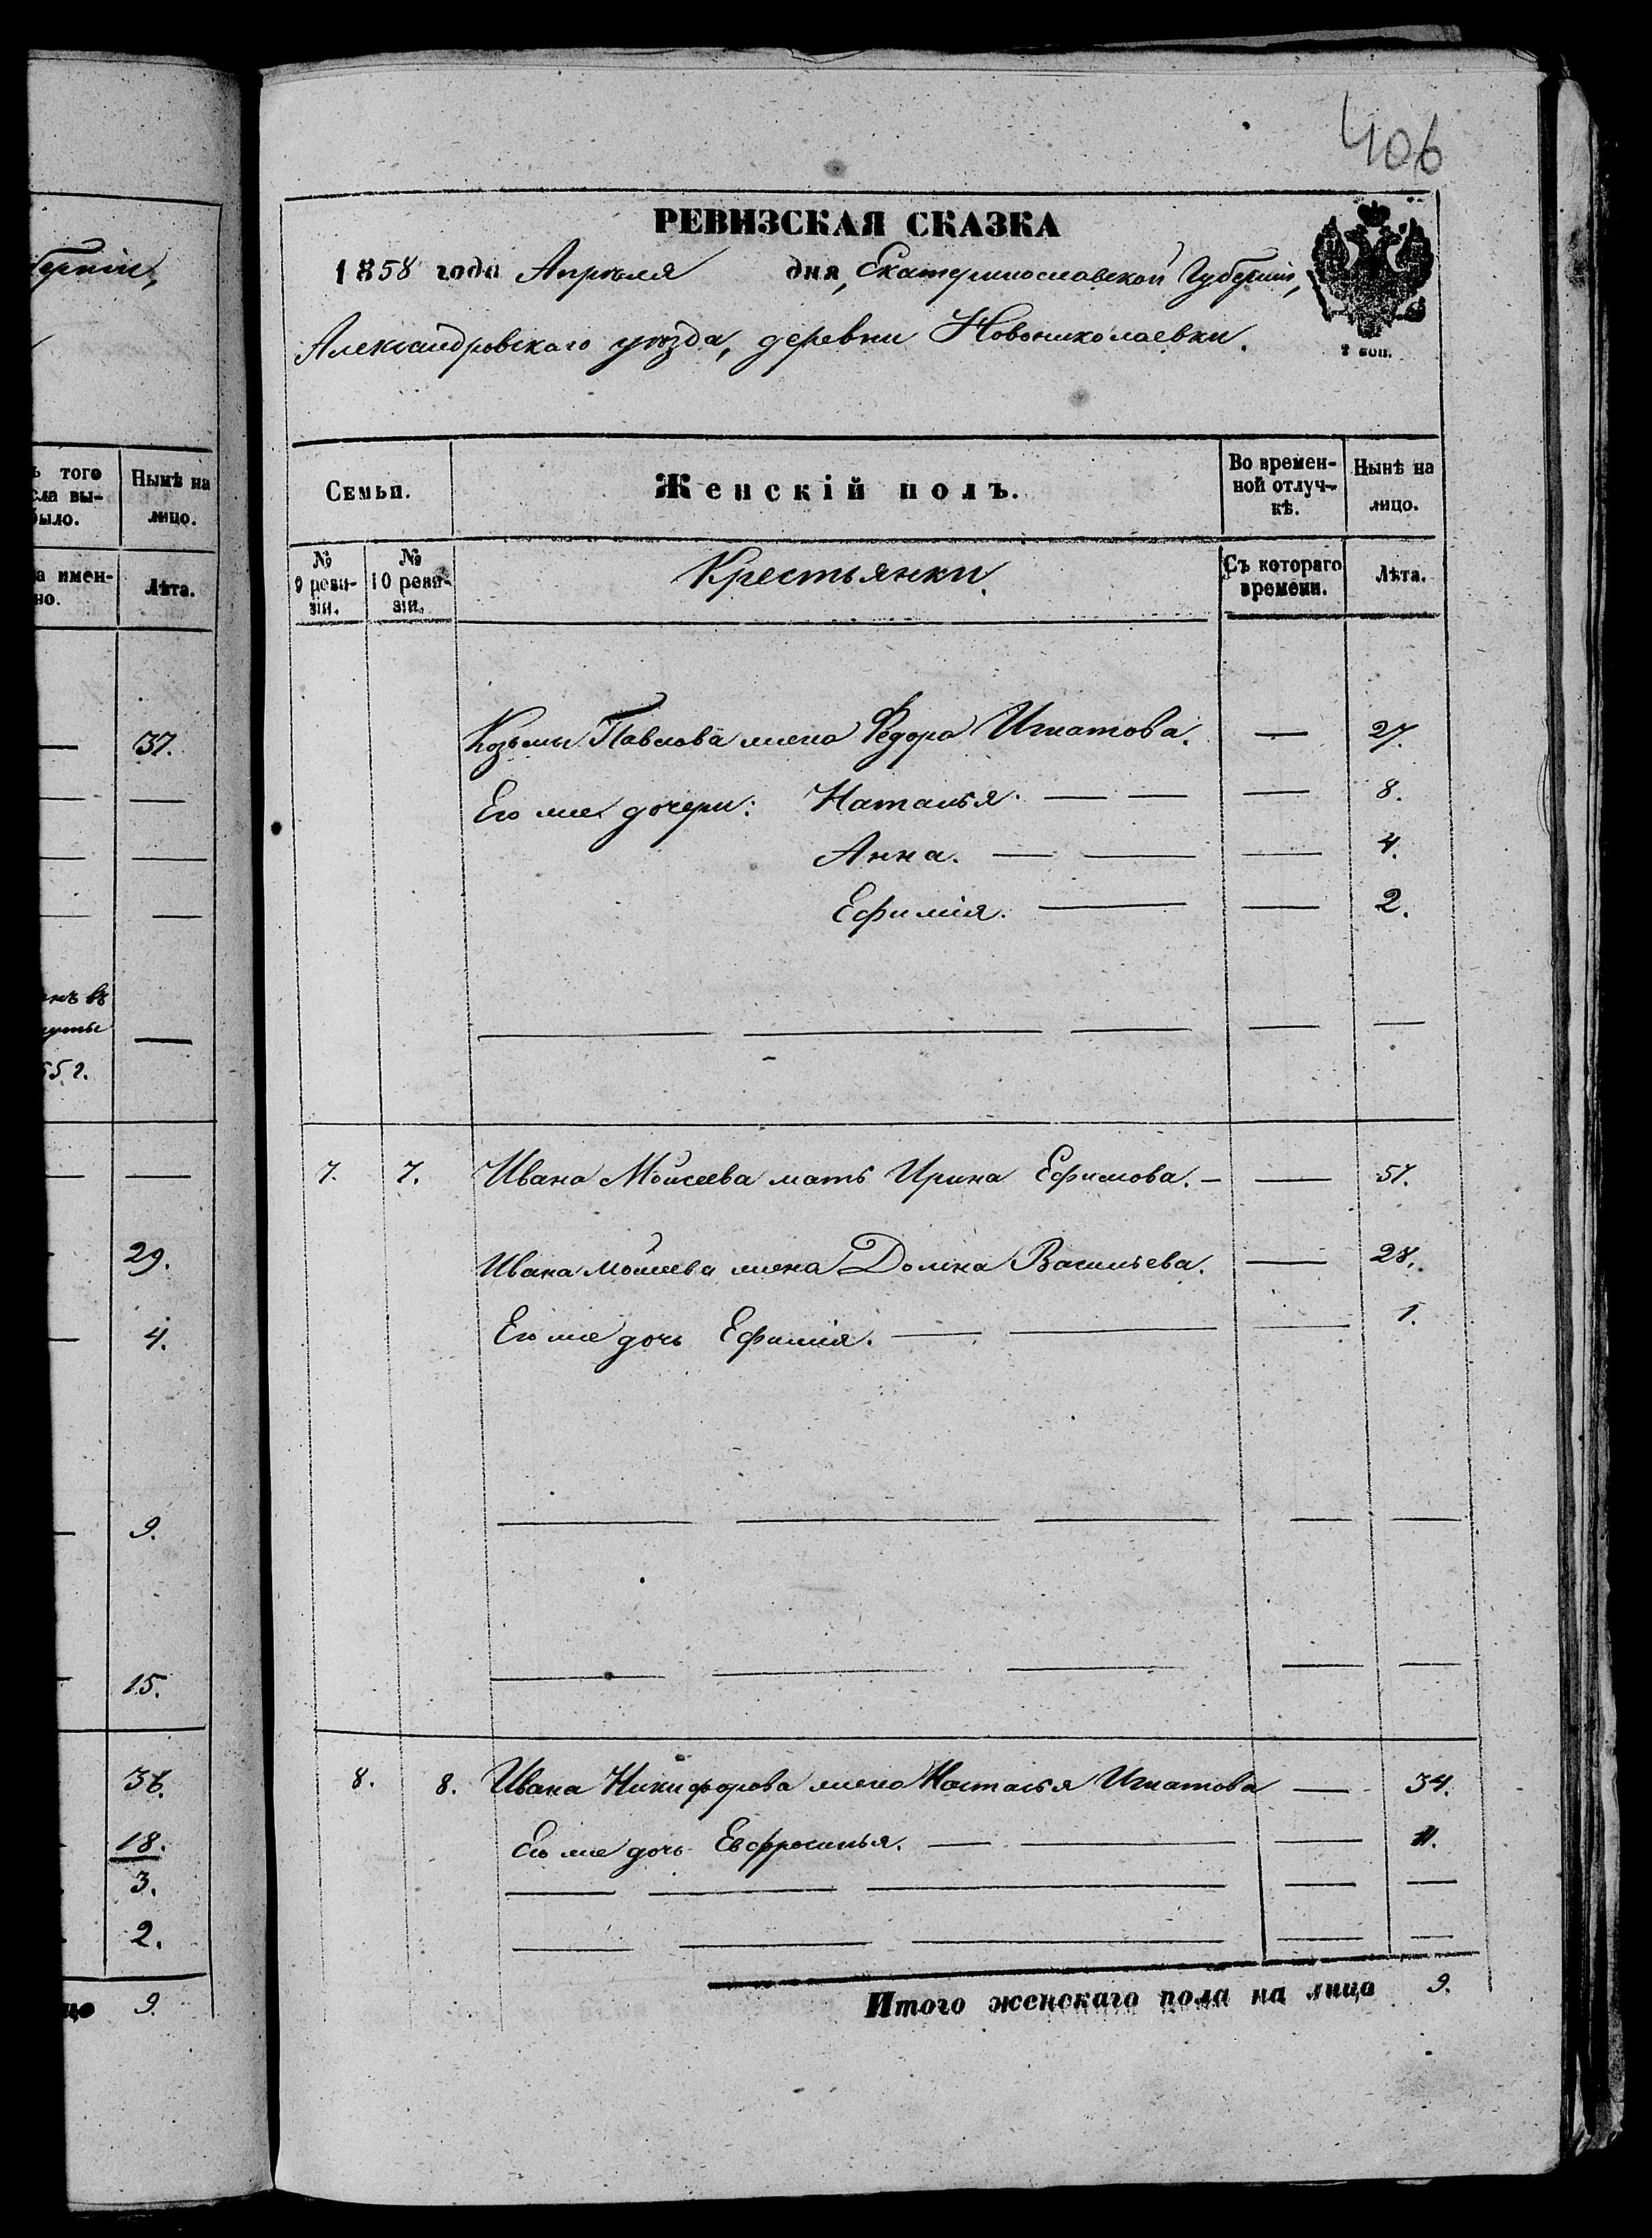 406
РЕВИЗСКАЯ СКАЗКА
1858 года Апрѣля дня, Екатеринославской Губерніи,
Александровскаго уѣзда, деревни Новониколаевки.
2 коп.
Семьи. Женскій полъ. Во времен-ной отлуч-кѣ. Нынѣ на лицо.
№ 9 реви-зіи. № 10 реви-зіи. Крестьянки. Съ котораго времени. Лѣта.
Козьмы Павлова жена Федора Игнатова. — 27.
Его же дочери: Наталья. — — — 8.
Анна. — — — 4.
Ефимія. — — 2.
7. 7. Ивана Моисеева мать Ирина Ефимова. — — 57.
Ивана Моисеева жена Домна Васильева. — 28.
Его же дочь Ефимія. — — — 1.
8. 8. Ивана Никифорова жена Наталья Игнатова — 34.
Его же дочь Евфросинья. — — — 11.
Итого женскаго пола на лицо 9.
губерніи,
ъ того
сла вы-
было.
Нынѣ на
лицо.
а имен-
но.
Лѣта.
37.
29.
4.
9.
15.
18.
3.
2.
9.